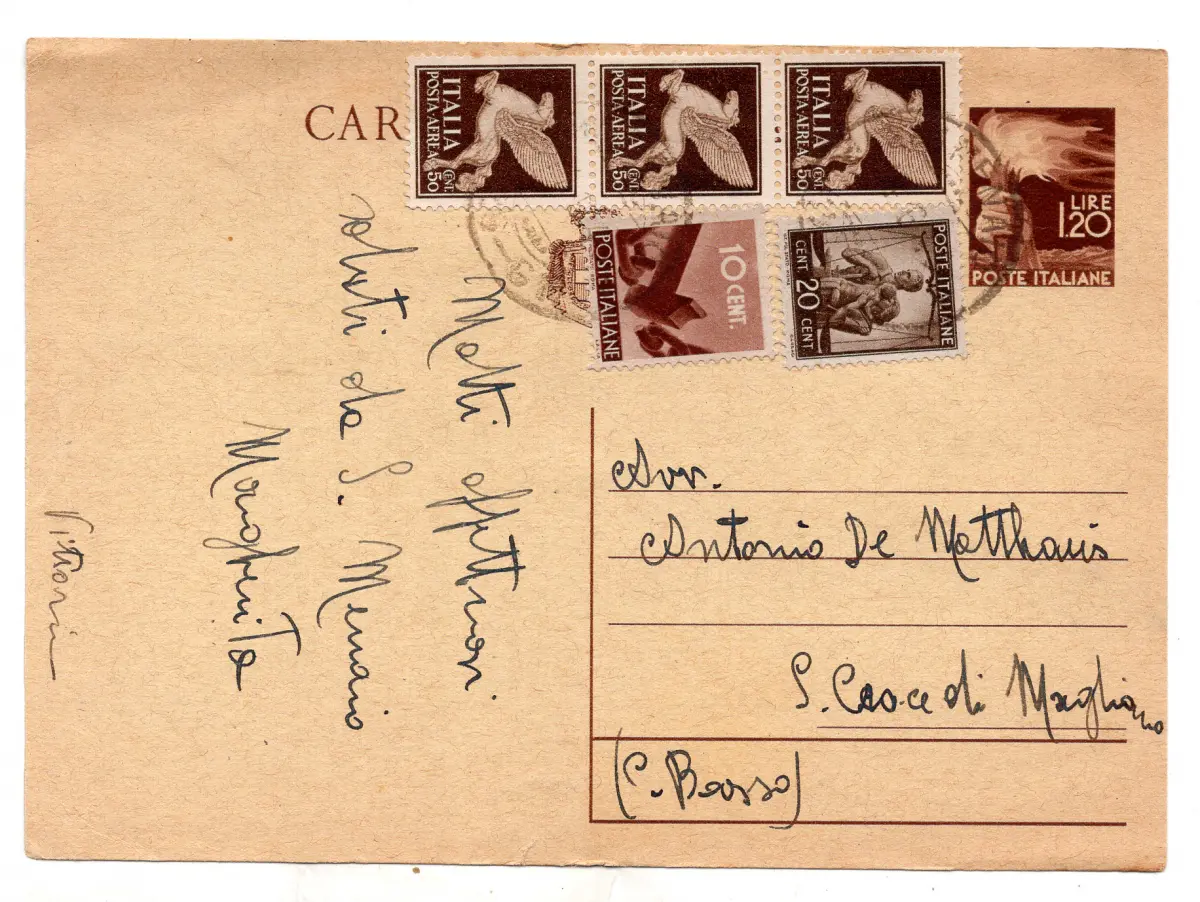 CAR
ITALIA
POSTA·AEREA
CENT. 50
ITALIA
POSTA·AEREA
CENT. 50
ITALIA
POSTA·AEREA
CENT. 50
LIRE
1,20
POSTE ITALIANE
10 CENT.
POSTE ITALIANE
POSTE ITALIANE
CENT. 20 CENT
Molti affettuosi
saluti da S.
Margherita
Vittorio
Avv.
Antonio De Matthaeis
S. Croce di Magliano
(C. Basso)